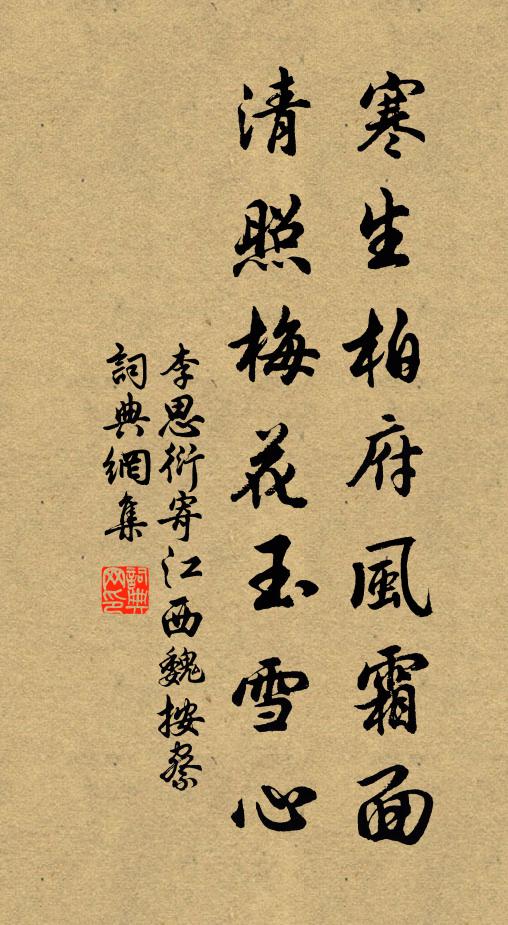 寒生柏府風霜面
清照梅花玉雪心
李思衍寄江西魏按察
詞典網集
詞典网印